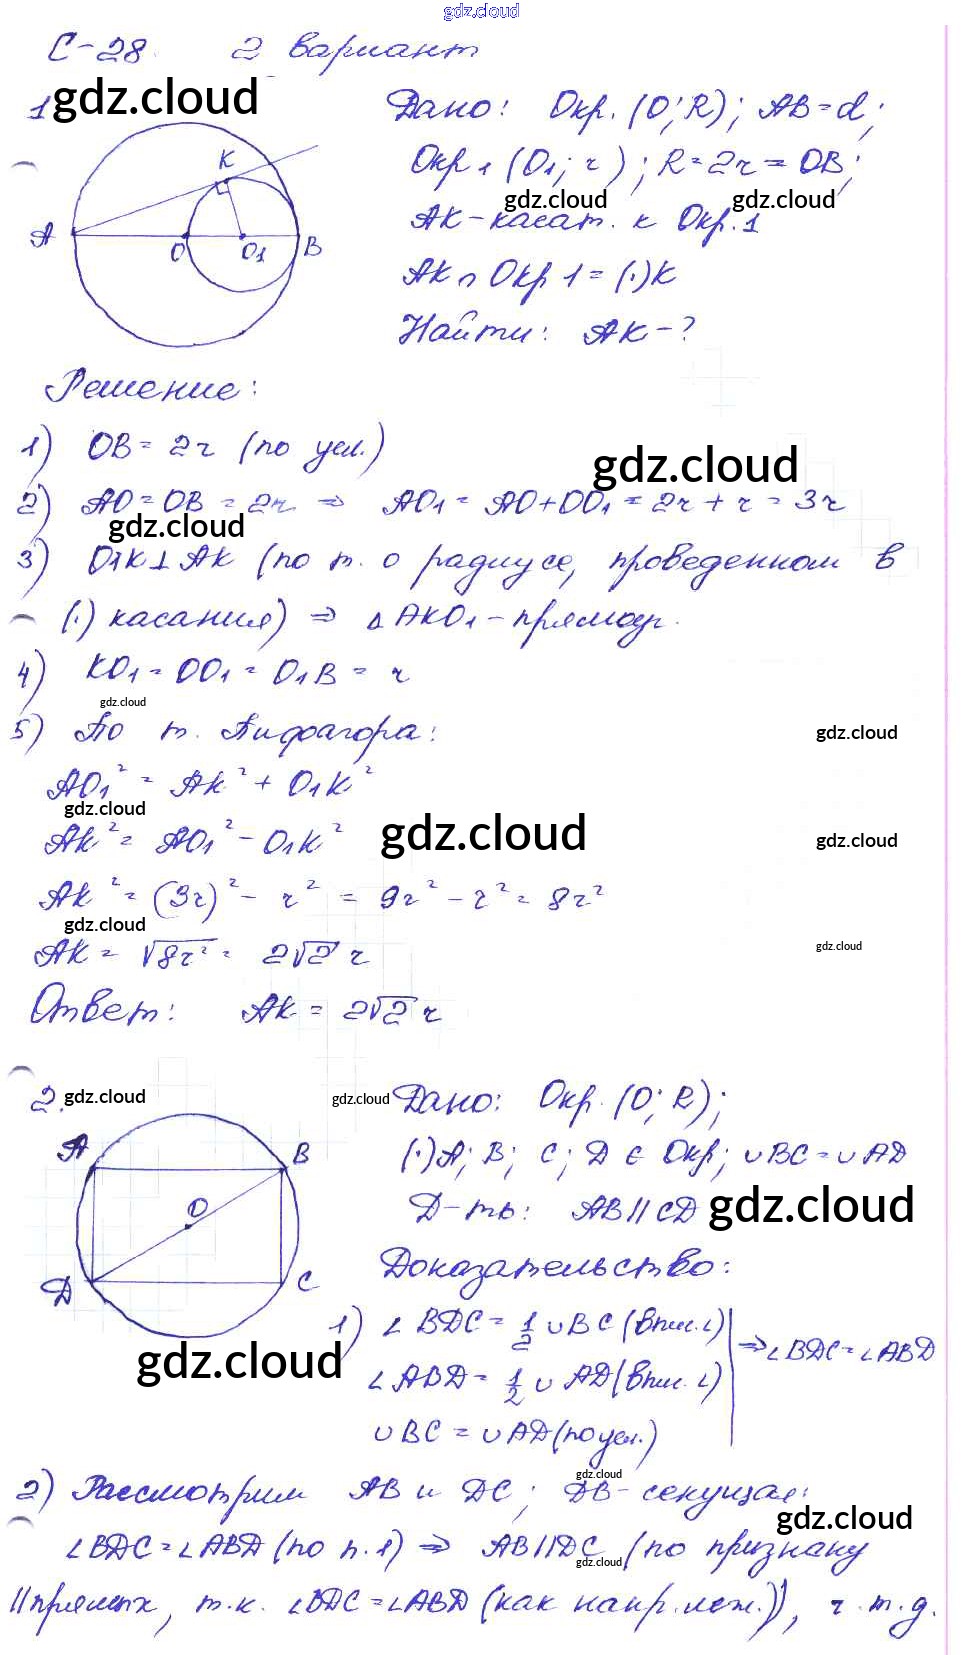 gdz.cloud
С-28. 2 вариант
1. gdz.cloud
Дано: Окр. (O; R); AB = d;
Окр 1 (O1; r); R = 2r = OB;
gdz.cloud gdz.cloud
AK - касат. к Окр. 1
AK ∩ Окр 1 = (·) K
Найти: AK - ?
K
A O O1 B
Решение:
1) OB = 2r (по усл.)
gdz.cloud
2) AO = OB = 2r ⇒ AO1 = AO + OO1 = 2r + r = 3r
gdz.cloud
3) O1K ⊥ AK (по т. о радиусе, проведенном в
(·) касания) ⇒ △ AKO1 - прямоуг.
4) KO1 = OO1 = O1B = r
gdz.cloud
5) По т. Пифагора:
gdz.cloud
AO1² = AK² + O1K²
gdz.cloud
AK² = AO1² - O1K²
gdz.cloud gdz.cloud
AK² = (3r)² - r² = 9r² - r² = 8r²
gdz.cloud
AK = √8r² = 2√2 r
gdz.cloud
Ответ: AK = 2√2 r
2. gdz.cloud
gdz.cloud
Дано: Окр. (O; R);
(·) A; B; C; D ∈ Окр; ∪ BC = ∪ AD
Д-ть: AB || CD
gdz.cloud
A B
O
D C
Доказательство:
1) ∠ BDC = 1/2 ∪ BC (впис. ∠)
∠ ABD = 1/2 ∪ AD (впис. ∠)
∪ BC = ∪ AD (по усл.)
⇒ ∠ BDC = ∠ ABD
gdz.cloud
gdz.cloud
2) Рассмотрим AB и DC; DB - секущая:
gdz.cloud
∠ BDC = ∠ ABD (по п. 1) ⇒ AB || DC (по признаку
gdz.cloud
|| прямых, т.к. ∠ BDC = ∠ ABD (как накр. леж.)), ч.т.д.